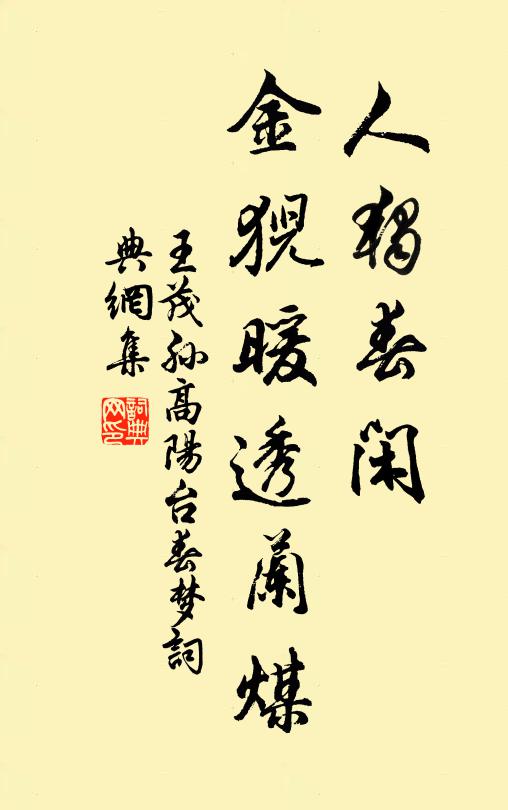 人獨春閑
金猊暖透蘭煤
王茂孙高陽台春梦詞
典網集
詞典
网印